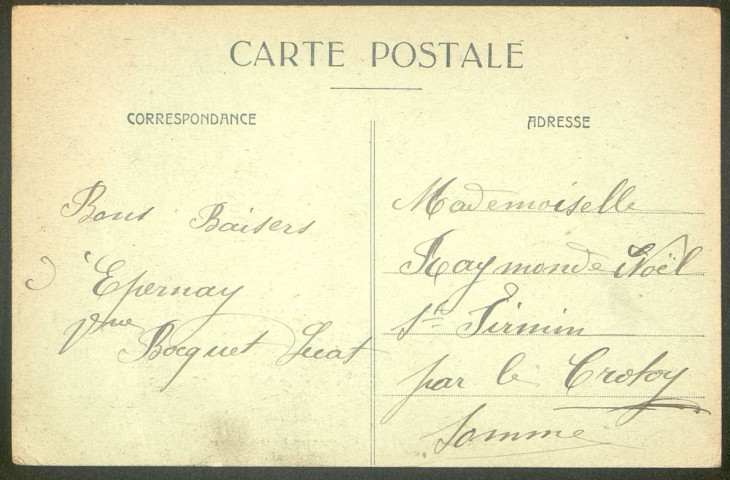 CARTE POSTALE
CORRESPONDANCE
Bons Baisers
d'Epernay
Vve Bocquet
ADRESSE
Mademoiselle
Raymonde Noël
St Firmin
par le Crotoy
Somme